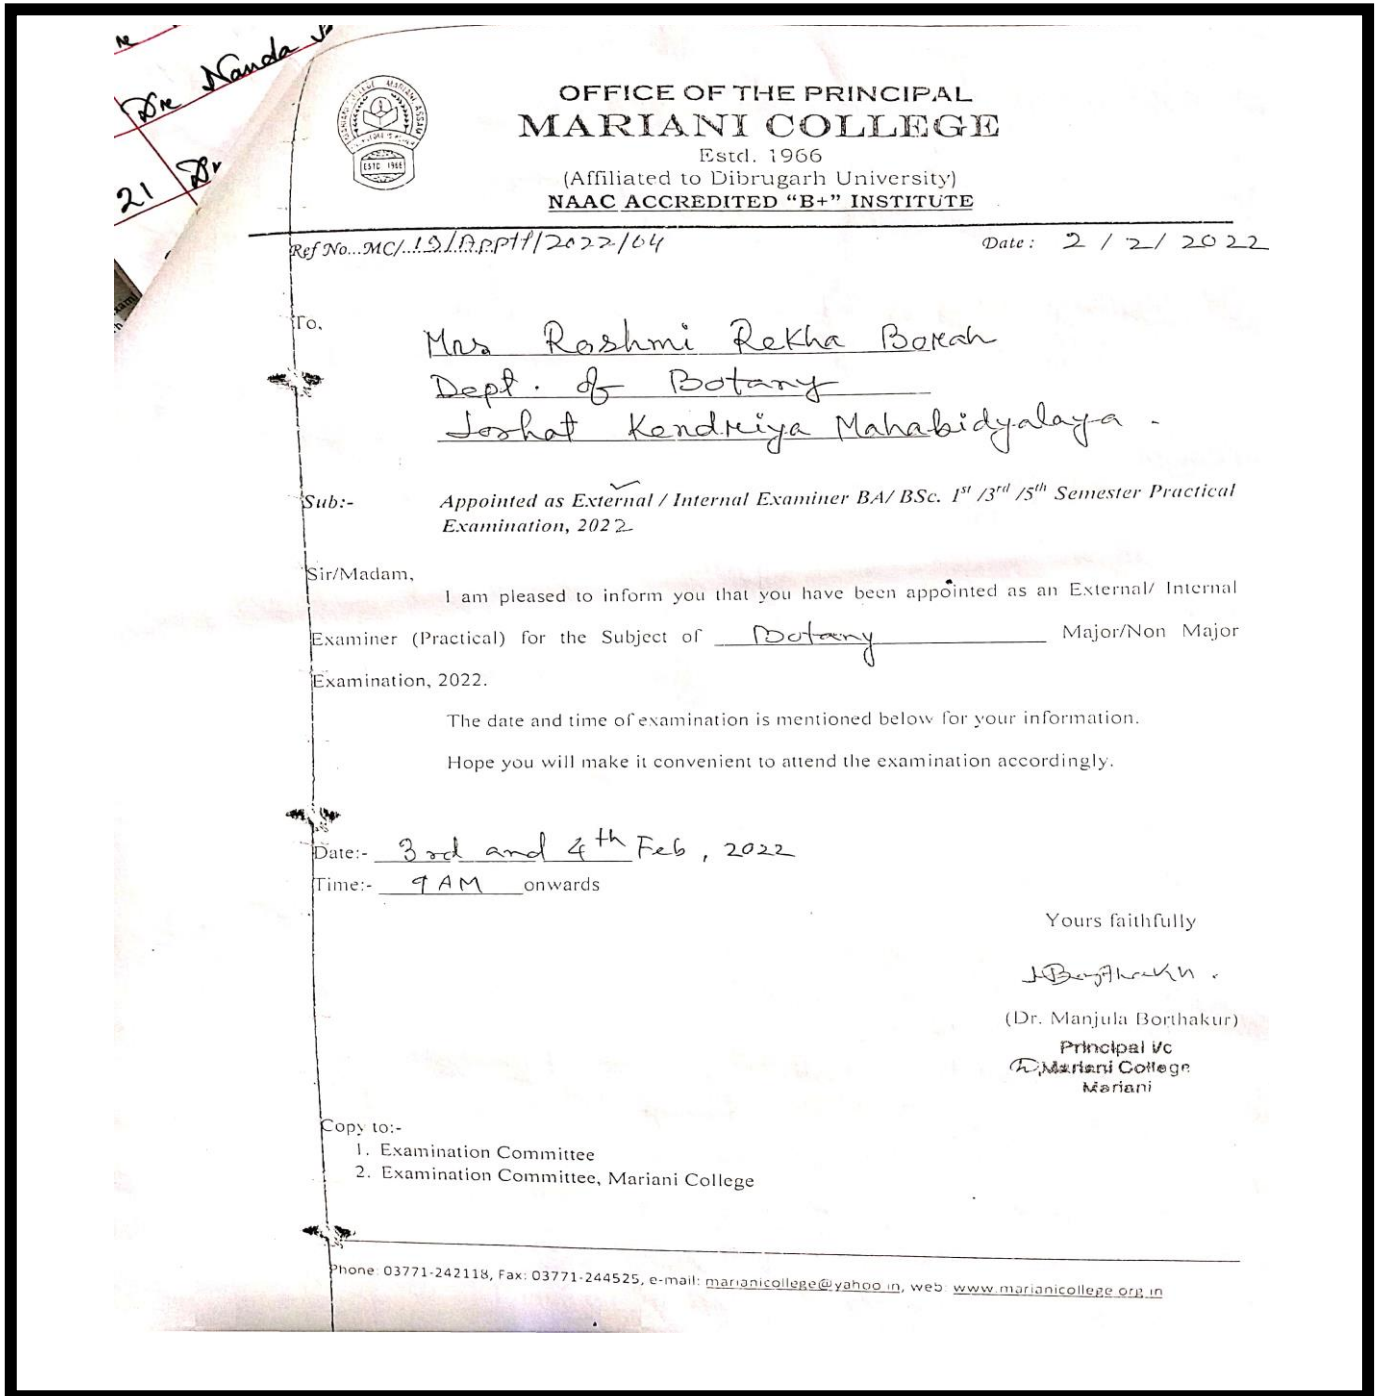 re
Dr Nanda
21 Dr
OFFICE OF THE PRINCIPAL
MARIANI COLLEGE
Estd. 1966
(Affiliated to Dibrugarh University)
NAAC ACCREDITED “B+” INSTITUTE
ESTD 1966
Ref No...MC/...19/Apptt/2022/64
Date: 2/2/2022
To,
Mrs Roshmi Rekha Borah
Dept. of Botany
Jorhat Kendriya Mahabidyalaya.
Sub:- Appointed as External / Internal Examiner BA/ BSc. 1st /3rd /5th Semester Practical
Examination, 2022
Sir/Madam,
I am pleased to inform you that you have been appointed as an External/ Internal
Examiner (Practical) for the Subject of Botany Major/Non Major
Examination, 2022.
The date and time of examination is mentioned below for your information.
Hope you will make it convenient to attend the examination accordingly.
Date:- 3rd and 4th Feb, 2022
Time:- 9 AM onwards
Yours faithfully
(Dr. Manjula Borthakur)
Principal i/c
Mariani College
Mariani
Copy to:-
1. Examination Committee
2. Examination Committee, Mariani College
Phone: 03771-242118, Fax: 03771-244525, e-mail: marianicollege@yahoo.in, web: www.marianicollege.org.in